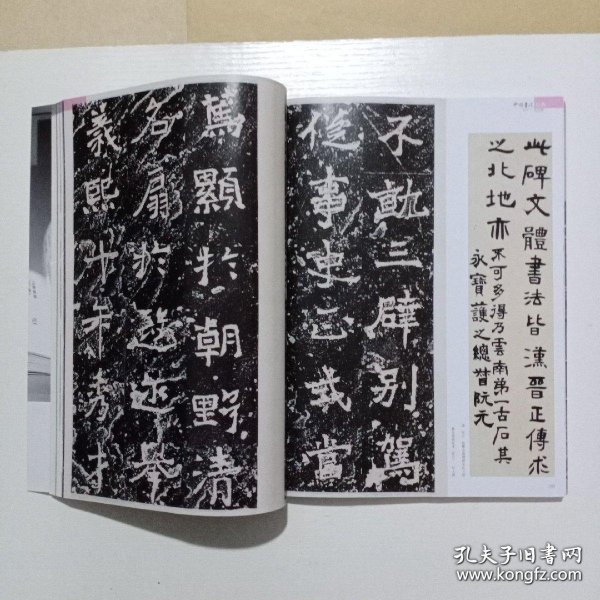 此碑文體書法皆漢晉正傳求
之北地亦不可多得乃雲南第一古石其
永寶護之總督阮元
不就三辟别駕
從事史正式當
篤顯於朝野清
名扇於遐迩舉
義熙十年秀才
孔夫子旧书网
www.kongfz.com